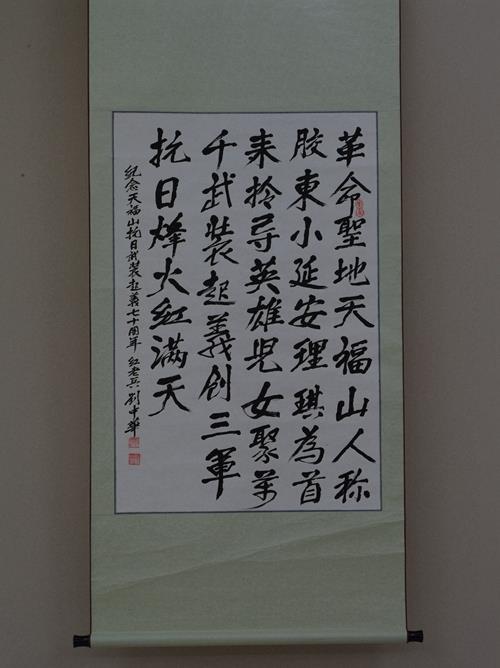 革命聖地天福山人称
胶東小延安理琪為首
来拎导英雄児女聚萬
千武裝起義创三軍
抗日烽火红满天
纪念天福山抗日武裝起義七十周年 红老兵 刘中華